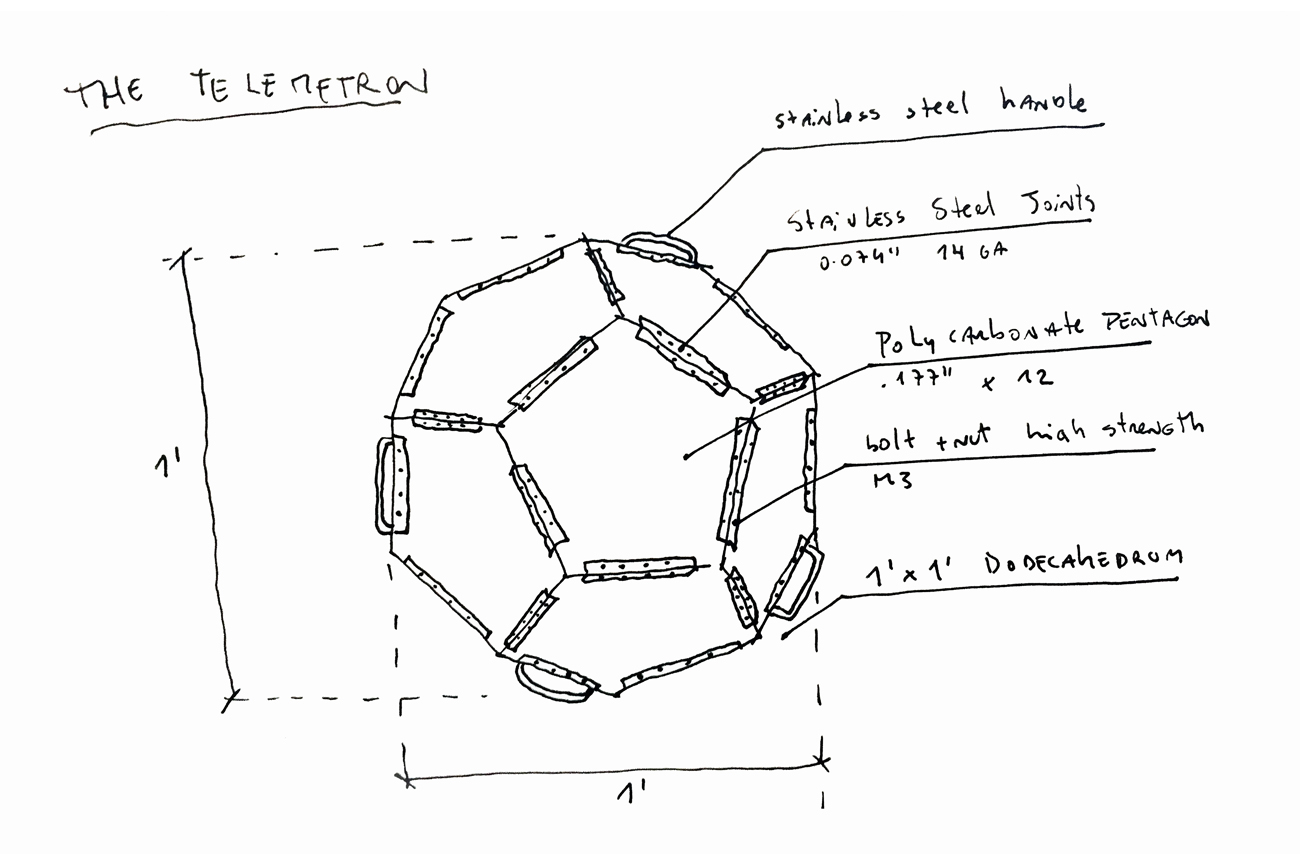 THE TELEMETRON
stainless steel handle
Stainless Steel Joints
0.074" 14 GA
Polycarbonate PENTAGON
.177" x 12
bolt + nut high strength
M3
1' x 1' DODECAHEDRUM
1'
1'